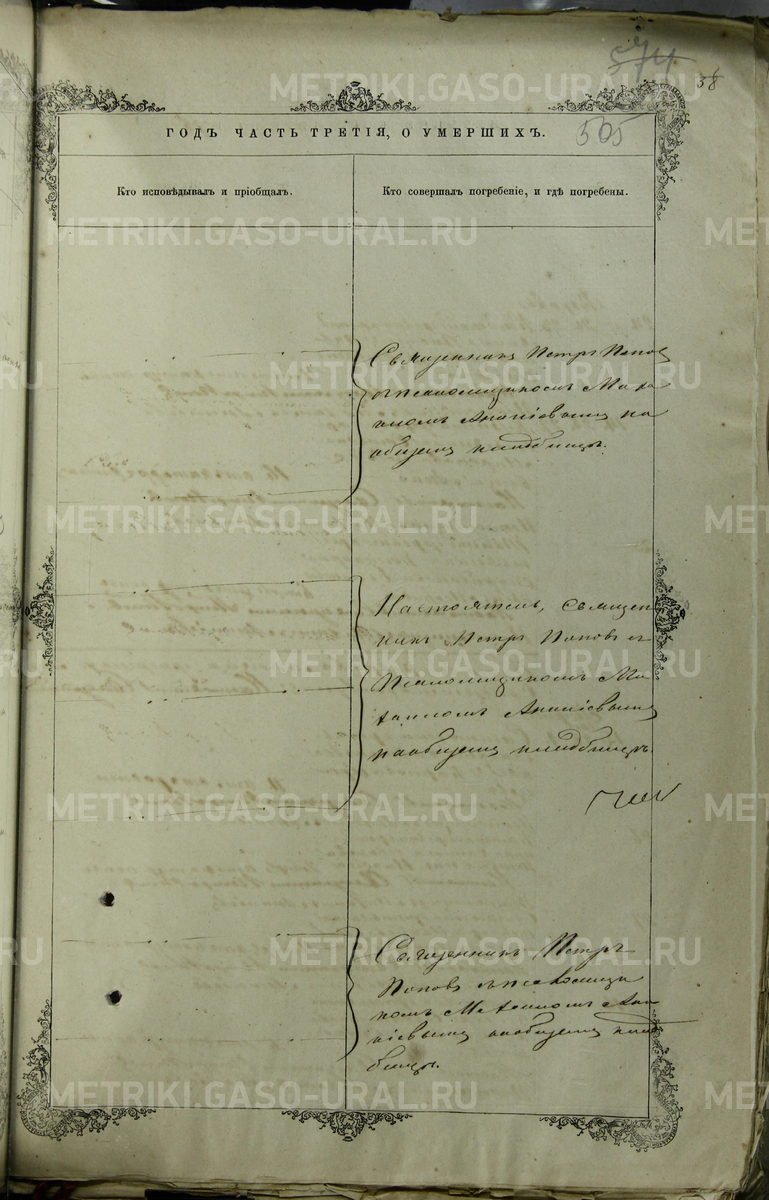 574
38
ГОДЪ ЧАСТЬ ТРЕТІЯ, О УМЕРШИХЪ.
505
Кто исповѣдывалъ и пріобщалъ.
Кто совершалъ погребеніе, и гдѣ погребены.
Священникъ Петръ Поповъ
съ псаломщикомъ Миха
иломъ Ананіевымъ на
общемъ кладбищѣ.
Настоятель, Священ
никъ Петръ Поповъ съ
Псаломщикомъ Ми
хаиломъ Ананіевымъ
на общемъ кладбищѣ
Священникъ Петръ
Поповъ съ псаломщи
комъ Михаиломъ Анан
іевымъ на общемъ клад
бищѣ.
METRIKI.GASO-URAL.RU